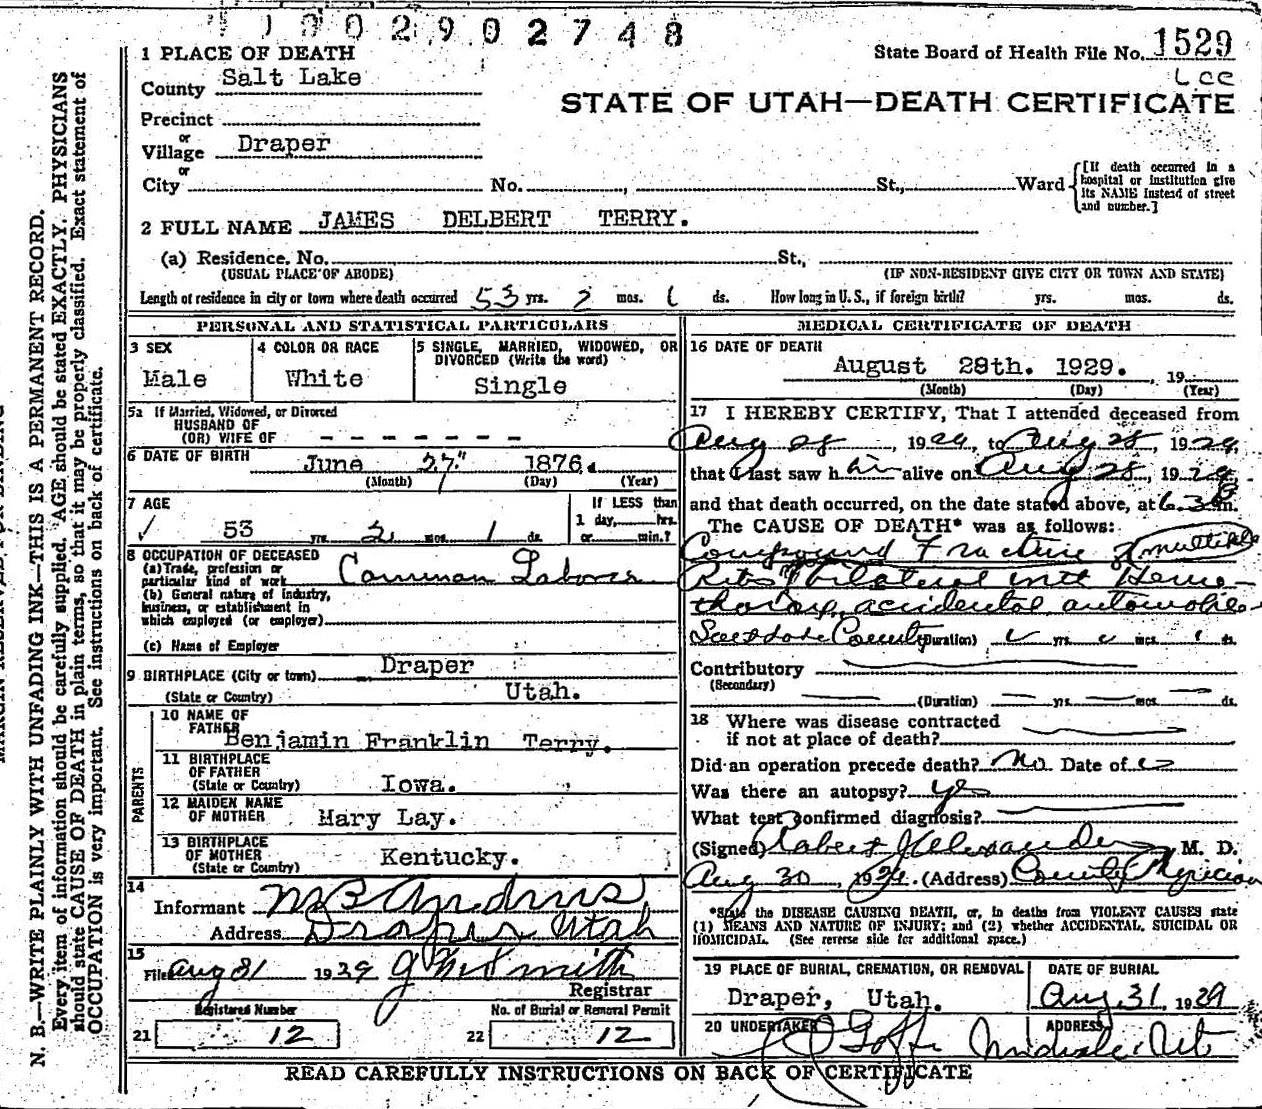 1 9 0 0 2 9 0 2 7 4 8
1 PLACE OF DEATH
State Board of Health File No. 1529
County Salt Lake
Lee
STATE OF UTAH—DEATH CERTIFICATE
Precinct
or
Village Draper
or
City No. , St., Ward
[If death occurred in a
hospital or institution give
its NAME instead of street
and number.]
2 FULL NAME JAMES DELBERT TERRY.
(a) Residence. No. St.,
(USUAL PLACE OF ABODE) (IF NON-RESIDENT GIVE CITY OR TOWN AND STATE)
Length of residence in city or town where death occurred 53 yrs. 2 mos. 1 ds. How long in U. S., if foreign birth? yrs. mos. ds.
PERSONAL AND STATISTICAL PARTICULARS
3 SEX
Male
4 COLOR OR RACE
White
5 SINGLE, MARRIED, WIDOWED, OR
DIVORCED (Write the word)
Single
5a If Married, Widowed, or Divorced
HUSBAND OF
(OR) WIFE OF - - - - - - -
6 DATE OF BIRTH June 27" 1876.
(Month) (Day) (Year)
7 AGE
53 yrs. 2 mos. 1 ds.
If LESS than
1 day, hrs.
or min.?
8 OCCUPATION OF DECEASED
(a) Trade, profession or
particular kind of work Common Laborer
(b) General nature of industry,
business, or establishment in
which employed (or employer)
(c) Name of Employer
9 BIRTHPLACE (City or town) Draper
(State or Country) Utah.
PARENTS
10 NAME OF
FATHER Benjamin Franklin Terry.
11 BIRTHPLACE
OF FATHER
(State or Country) Iowa.
12 MAIDEN NAME
OF MOTHER Mary Lay.
13 BIRTHPLACE
OF MOTHER
(State or Country) Kentucky.
14
Informant M B Andrus
Address Draper Utah
15
Filed Aug 31 1929 Smith
Registrar
Registered Number
21 12
No. of Burial or Removal Permit
22 12
MEDICAL CERTIFICATE OF DEATH
16 DATE OF DEATH
August 28th. 1929. , 19
(Month) (Day) (Year)
17 I HEREBY CERTIFY, That I attended deceased from
Aug 28 , 1929, to Aug 28 , 1929,
that I last saw him alive on Aug 28, 1929
and that death occurred, on the date stated above, at 6.30 P m.
The CAUSE OF DEATH* was as follows:
Compound Fracture of multiple
Ribs bilateral with Hemo-
thorax, accidental automobile
Salt Lake County (Duration) yrs. mos. ds.
Contributory
(Secondary)
(Duration) yrs. mos. ds.
18 Where was disease contracted
if not at place of death?
Did an operation precede death? No Date of
Was there an autopsy? yes
What test confirmed diagnosis?
(Signed) Robert J Alexander M. D.
Aug 30 , 1929. (Address) County Physician
*State the DISEASE CAUSING DEATH, or, in deaths from VIOLENT CAUSES state
(1) MEANS AND NATURE OF INJURY; and (2) whether ACCIDENTAL, SUICIDAL OR
HOMICIDAL. (See reverse side for additional space.)
19 PLACE OF BURIAL, CREMATION, OR REMOVAL
Draper, Utah.
DATE OF BURIAL
Aug. 31, 1929
20 UNDERTAKER Goff
ADDRESS Midvale, Ut
READ CAREFULLY INSTRUCTIONS ON BACK OF CERTIFICATE
N. B.—WRITE PLAINLY WITH UNFADING INK—THIS IS A PERMANENT RECORD.
Every item of information should be carefully supplied. AGE should be stated EXACTLY. PHYSICIANS
should state CAUSE OF DEATH in plain terms, so that it may be properly classified. Exact statement of
OCCUPATION is very important. See instructions on back of certificate.